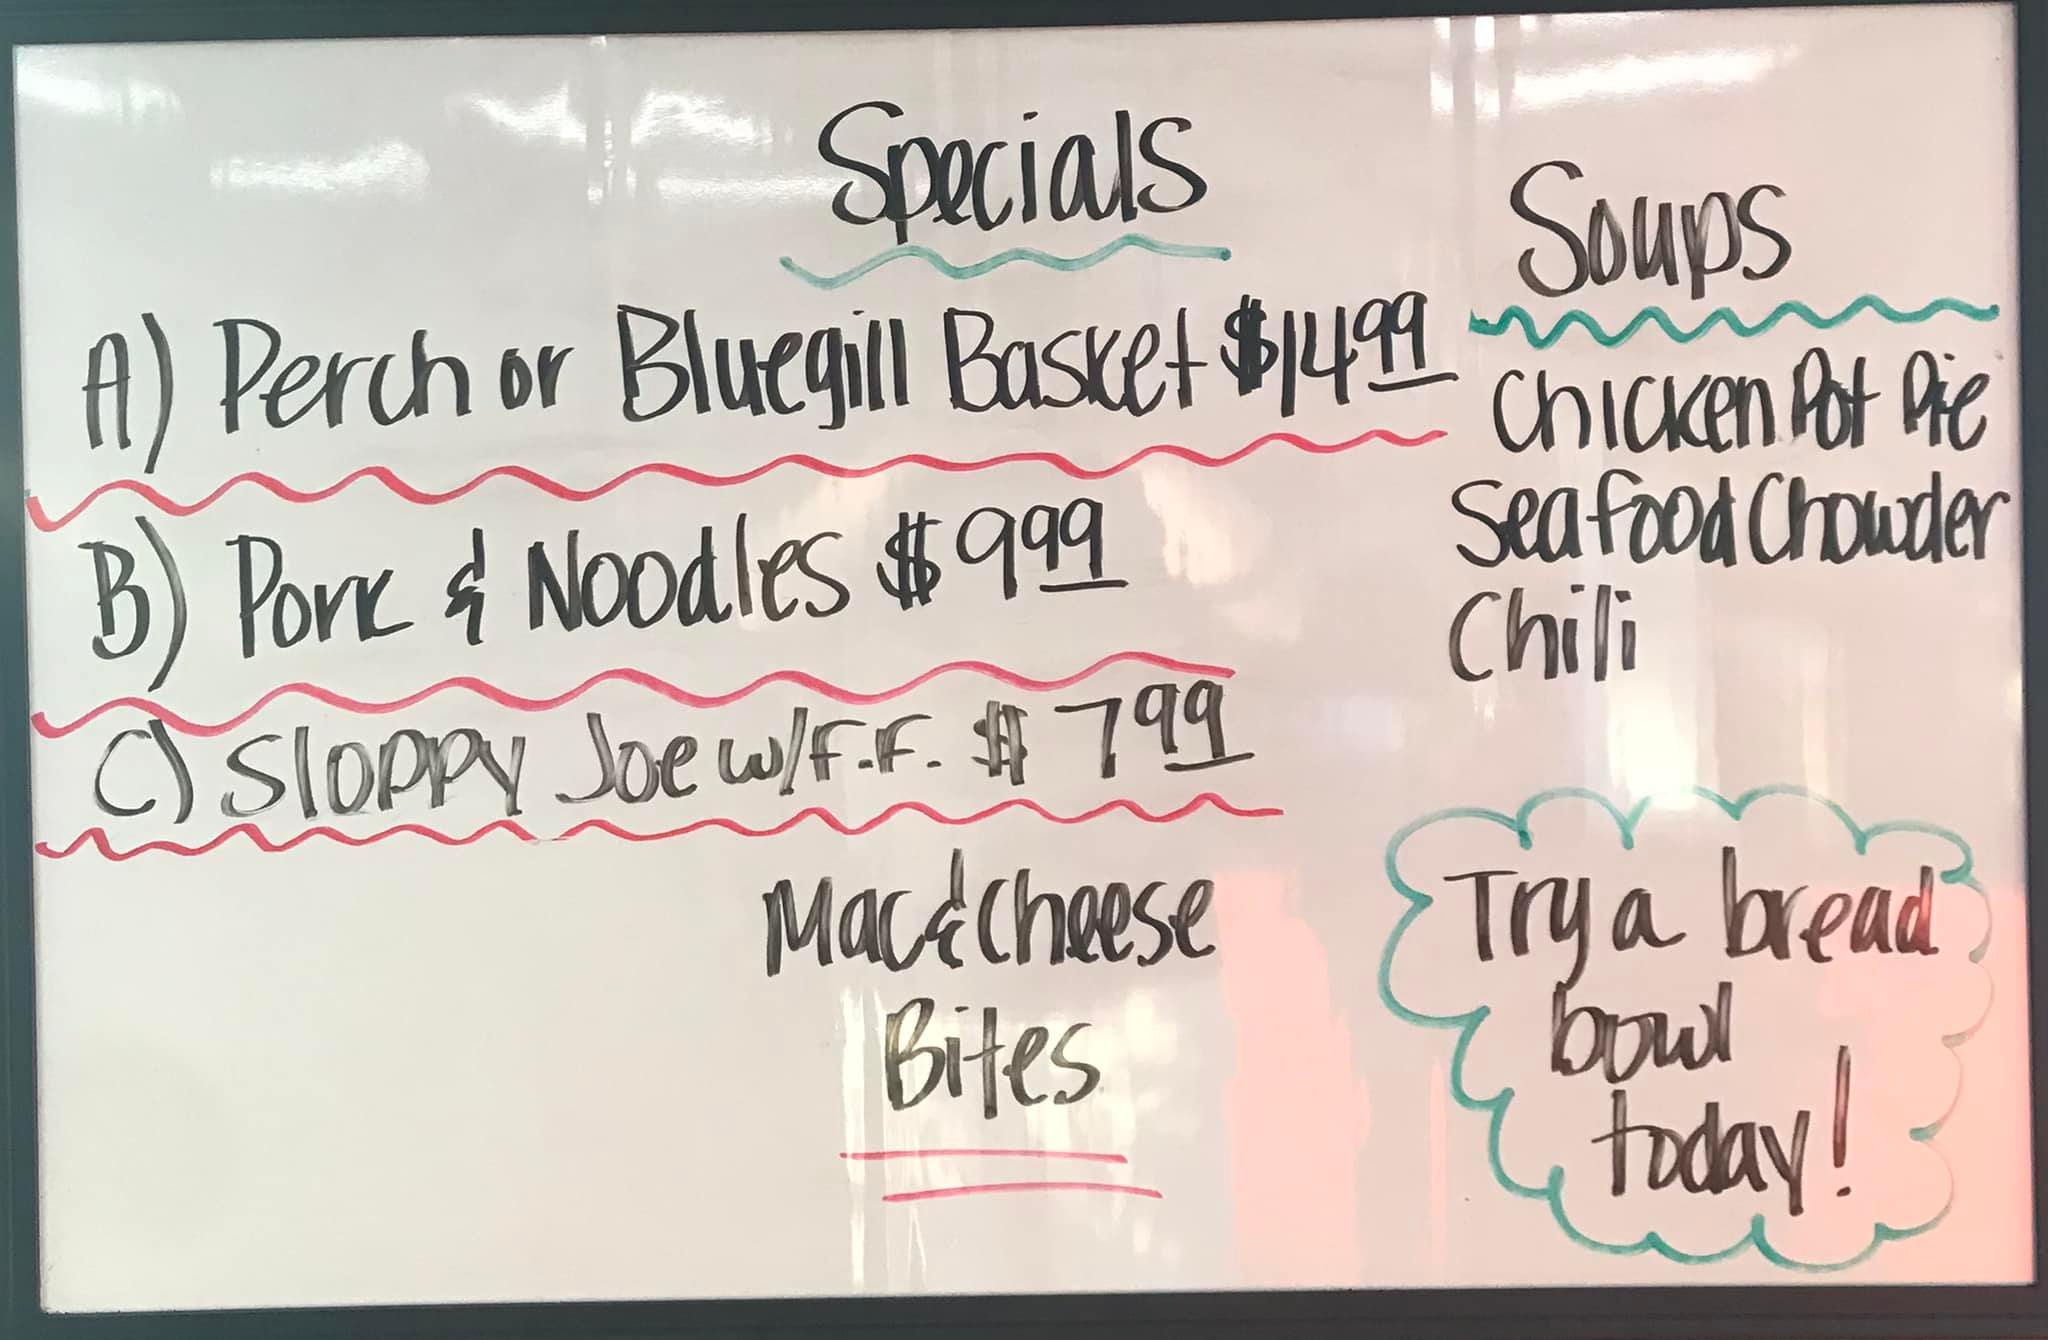 Specials
A) Perch or Bluegill Basket $14.99
B) Pork & Noodles $9.99
C) Sloppy Joe w/F.F. $7.99
Mac & Cheese
Bites
Soups
Chicken Pot Pie
Seafood Chowder
Chili
Try a bread
bowl
today!